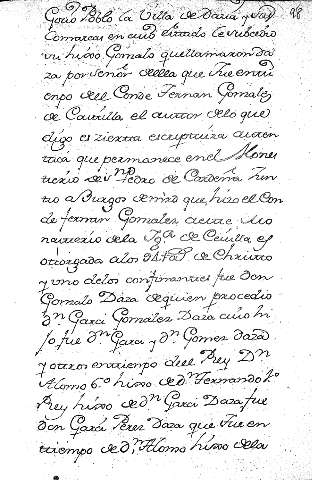 98
Gozó Pobló la Villa de Daza y sus
Comarcas en cuio estado le subcedio
vn hixo Gonzalo que llamaron da
za por señor de ella que fue en ti
enpo del Conde Fernan Gonzalez
de Castilla el auttor de lo que
digo es zierta escriptura auten
tica que permanece en el Mones
terio de Sn Pedro de Cardeña Jun
tto a Burgos de mro que hizo el Con
de fernan Gonzalez a este Mo
nasterio de la Iga de Cevilla es
ottorgada a los de Christo
y vno de los confirmantes fue don
Gonzalo Daza de quien procedio
Dn Garci Gonzalez Daza cuio hi
jo fue Dn Garci y Dn Gomez daza
y ottros en tiempo del Rey Dn
Alonso 6o hixo de Dn Fernando 1o
Rey hixo de Dn Garci Daza fue
don Garci Perez Daza que fue en
ttiempo de Dn Alonso hixo de la